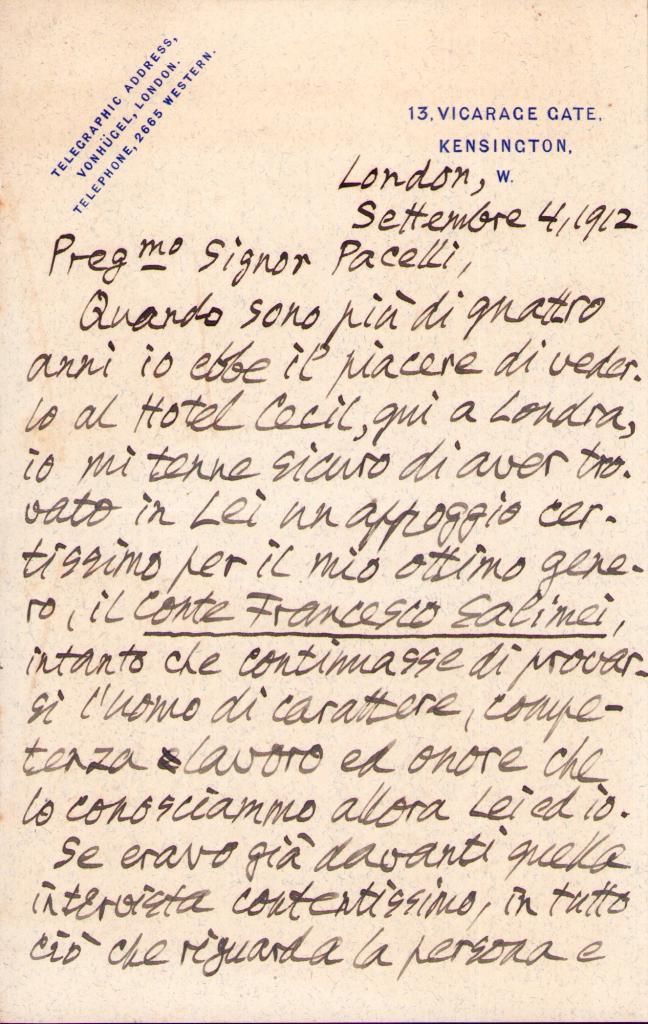 TELEGRAPHIC ADDRESS,
VONHÜGEL, LONDON.
TELEPHONE, 2665 WESTERN.
13, VICARAGE GATE,
KENSINGTON,
W.
London,
Settembre 4, 1912
Preg.mo Signor Pacelli,
Quando sono più di quattro
anni io ebbe il piacere di veder-
lo al Hotel Cecil, qui a Londra,
io mi tenne sicuro di aver tro-
vato in Lei un appoggio cer-
tissimo per il mio ottimo gene-
ro, il Conte Francesco Salimei,
intanto che continuasse di provar-
si l'uomo di carattere, compe-
tenza lavoro ed onore che
lo conosciammo allora Lei ed io.
Se eravo già davanti quella
intervista contentissimo, in tutto
ciò che riguarda la persona e